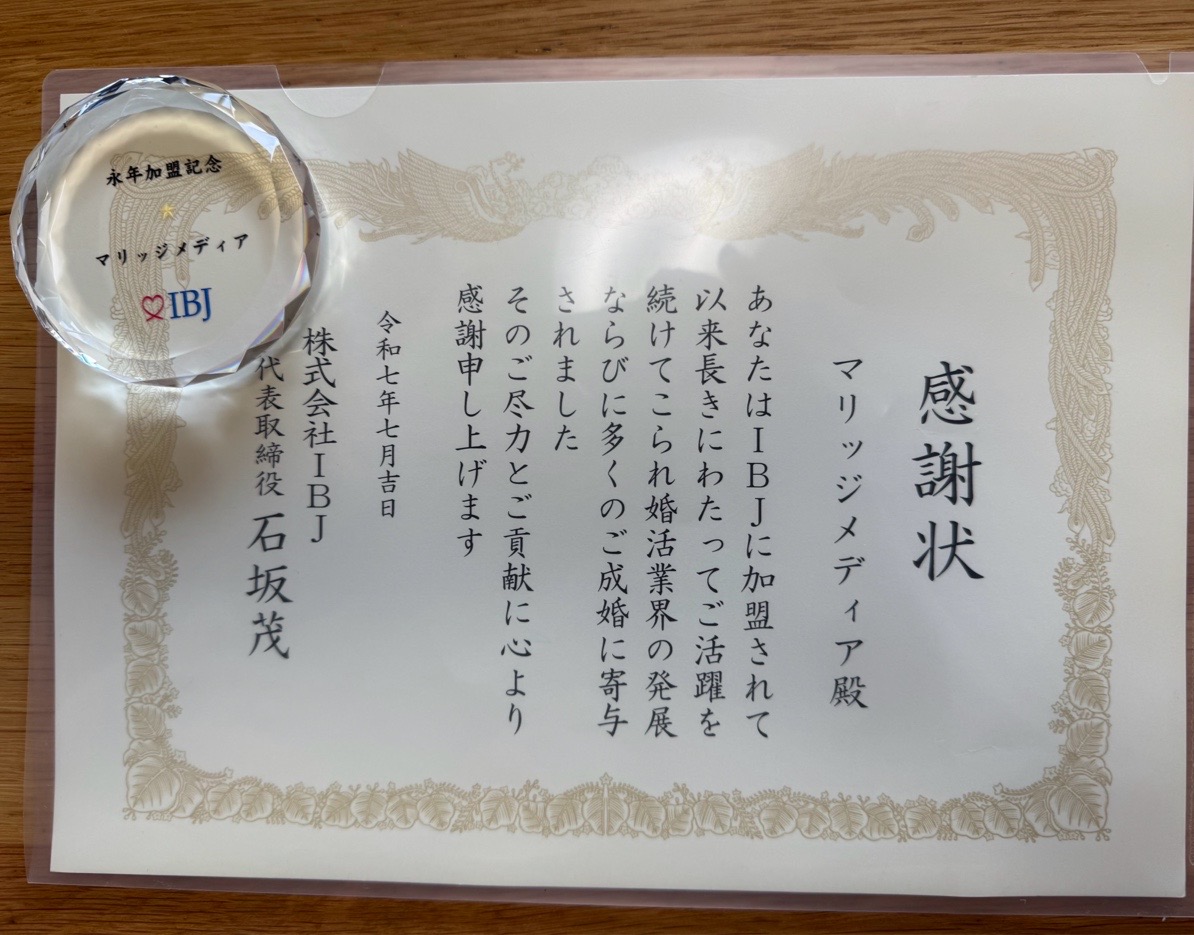 感謝状
マリッジメディア殿
あなたはIBJに加盟されて
以来長きにわたってご活躍を
続けてこられ婚活業界の発展
ならびに多くのご成婚に寄与
されました
そのご尽力とご貢献に心より
感謝申し上げます
令和七年七月吉日
株式会社IBJ
代表取締役 石坂茂
永年加盟記念
マリッジメディア
IBJ